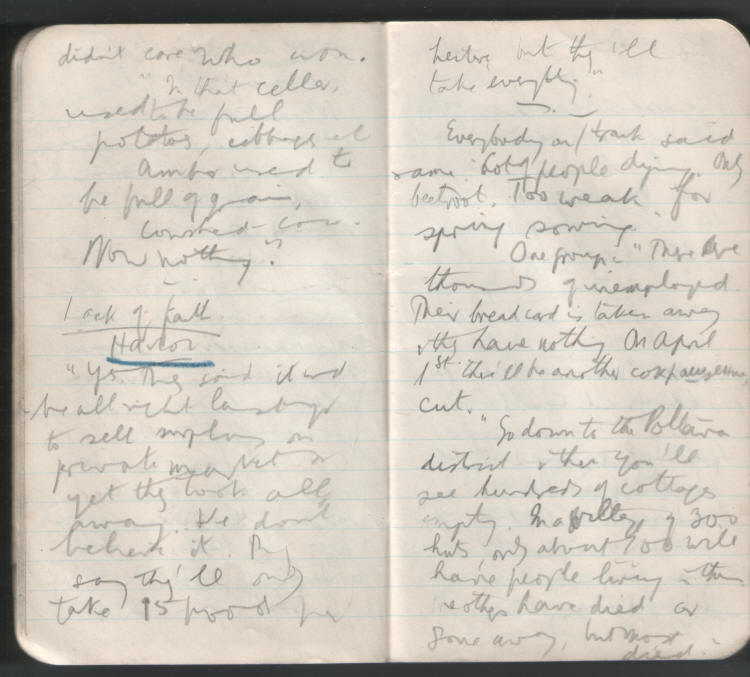 didn't care who won.
"In that cellar,
used to be full
potatoes, cabbages et
ambar used to
be full of grain,
crushed corn.
Now nothing".
Lack of faith
"Yes. They said it wd
be all right
to sell surplus on
private market &
yet they took all
away. We don't
believe it. They
say they'll only
take 15 poods per
hectare but they'll
take everything"
Everybody on track said
same hot people dying. Only
beetroot. Too weak for
spring sowing.
One group: "There are
thousands of unemployed.
Their bread card is taken away
& they have nothing. On April
1st there'll be another
cut."
"Go down to the Poltava
district & then you'll
see hundreds of cottages
empty. In a village of 300
huts, only about 100 will
have people living in them
the others have died or
gone away, but most
died."